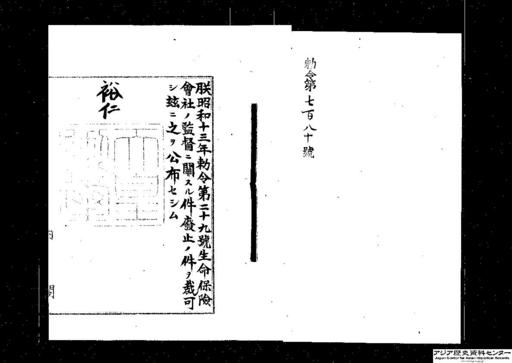 勅令第七百八十號
朕昭和十三年勅令第二十九號生命保險
會社ノ監督ニ關スル件廢止ノ件ヲ裁可
シ玆ニ之ヲ公布セシム
裕仁
内閣
アジア歴史資料センター
Japan Center for Asian Historical Records